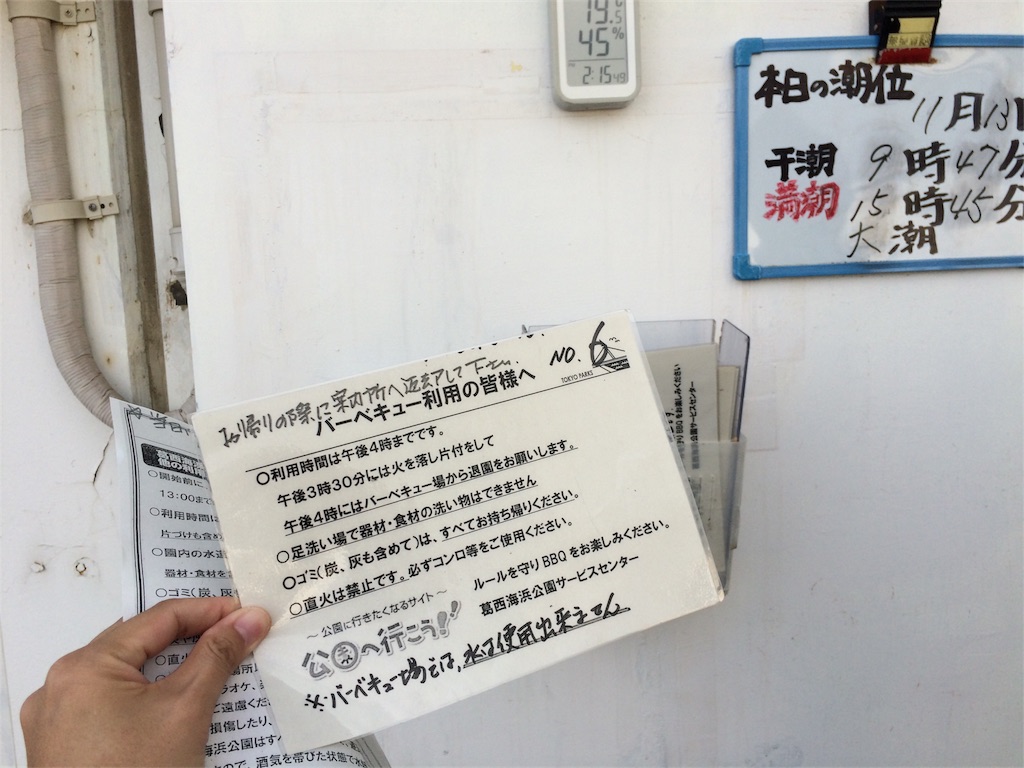 19.5
45%
2:15 49
本日の潮位
11月13日
干潮 9時47分
満潮 15時45分
大潮
NO. 6
TOKYO PARKS
お帰りの際に案内所へ返却して下さい
バーベキュー利用の皆様へ
○利用時間は午後4時までです。
午後3時30分には火を落し片付をして
午後4時にはバーベキュー場から退園をお願いします。
○足洗い場で器材・食材の洗い物はできません
○ゴミ(炭、灰も含めて)は、すべてお持ち帰りください。
○直火は禁止です。必ずコンロ等をご使用ください。
ルールを守りBBQをお楽しみください。
葛西海浜公園サービスセンター
～公園に行きたくなるサイト～
公園へ行こう!
※バーベキュー場では、水は使用出来ません
守りBBQをお楽しみください
浜公園サービスセンター
葛西海
他の利用
○開始前に
13:00まで
○利用時間は
片づけも含め
○園内の水道
器材・食材を
○ゴミ(炭、灰
○直火
場所
ラオケ、
ご遠慮くだ
損傷したり、
海浜公園はすべ
ので、酒気を帯びた状態で